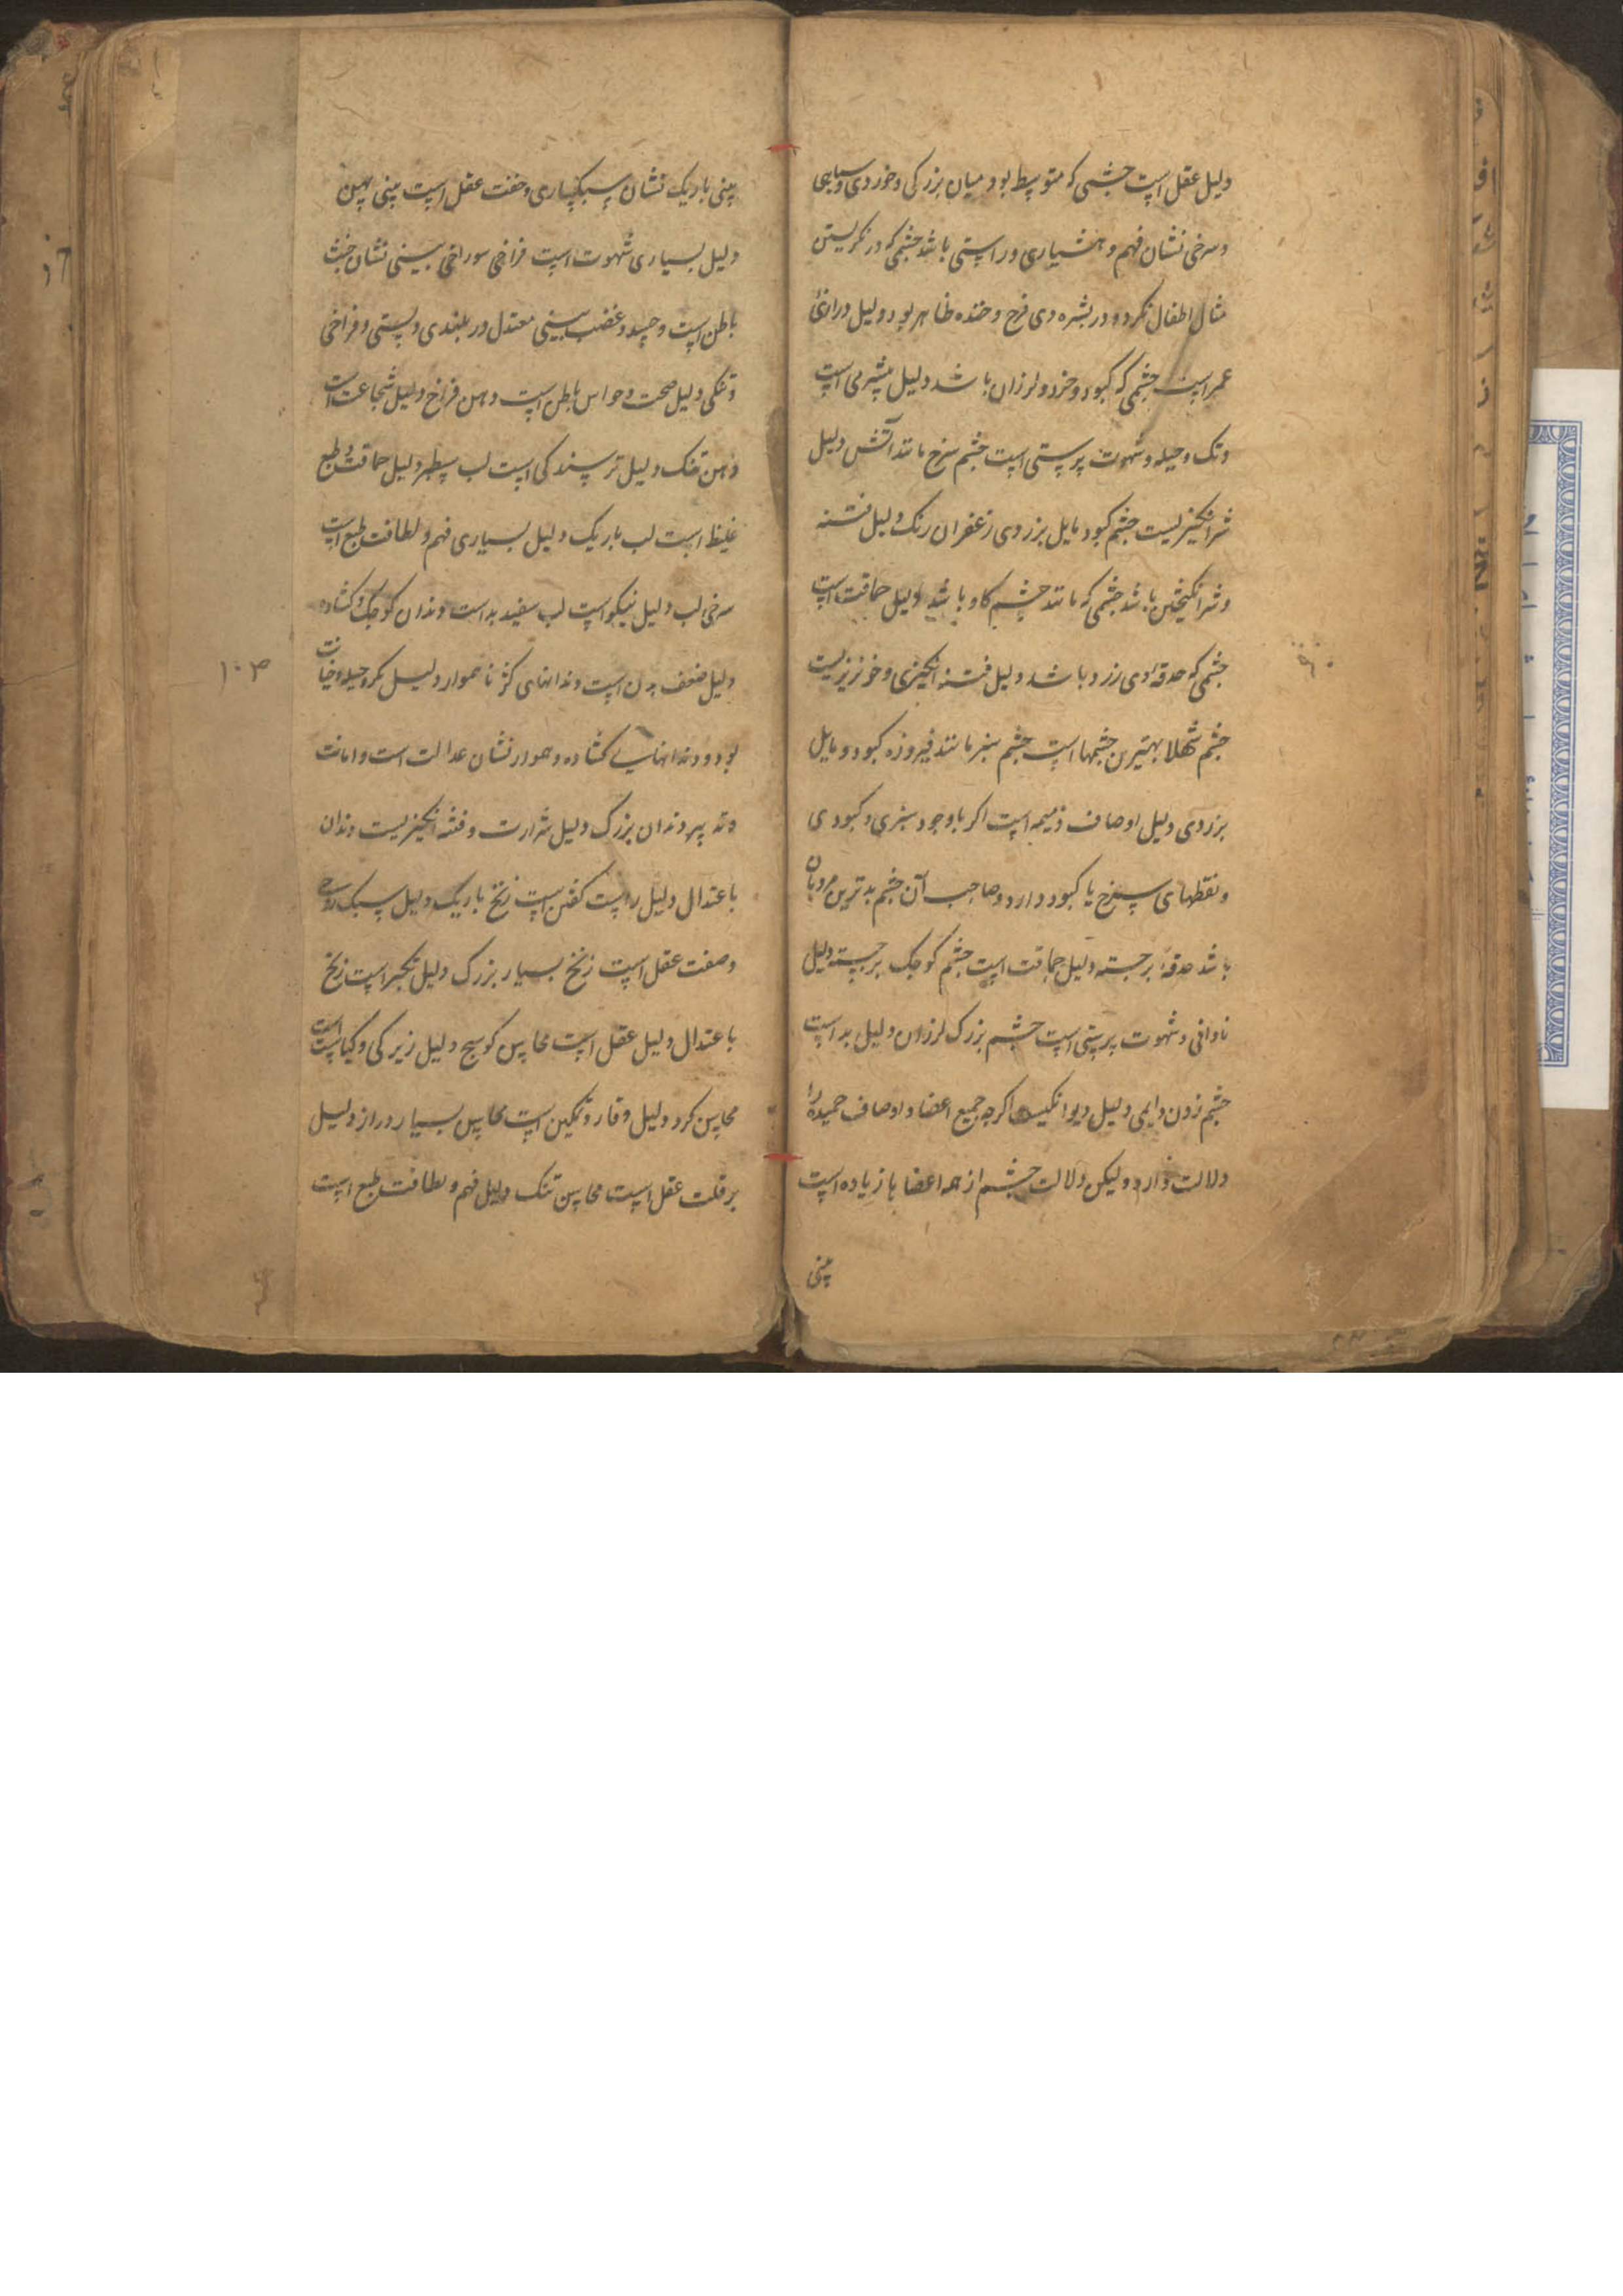 دلیل عقل است چشمی که متوسط بود میان بزرکی و خوردی و سیاهی
و سرخی نشان فهم و هشیاری و راستی باشد چشمی که در نکریستن
مثال اطفال نکرد و در بشره وی فرح و خنده ظاهر بود دلیل درازئ
عمر است چشمی که کبود و خرد و لرزان باشد دلیل بیشرمی است
و تک و حیله و شهوت پرستی است چشم سرخ مانند آتش دلیل
شر انکیزیست چشم کبود مایل بزردی زعفران رنک دلیل فتنه
و شر انکیختن باشد چشمی که مانند چشم کاو باشد دلیل حماقت است
چشمی که حدقه اوی زرد باشد دلیل فتنه انکیزی و خونریزیست
چشم شهلا بهترین چشمها است چشم سبز مانند فیروزه کبود و مایل
بزردی دلیل اوصاف ذمیمه است اکر با وجود سبزی و کبودی
و نقطهای سرخ یا کبود دارد و صاحب آن چشم بدترین مردمان
باشد حدقهٔ برجسته دلیل حماقت است چشم کوچک برجسته دلیل
نادانی و شهوت پرستی است چشم بزرک لرزان دلیل بد است
چشم زدن دایمی دلیل دیوانکیست اکرچه جمیع اعضا و اوصاف حمیده را
دلالت دارد و لیکن دلالت چشم از همه اعضا با زیاده است
بینی
بینی باریک نشان سبکساری و خفت عقل است بینی پهن
دلیل بسیاری شهوت است فراخی سوراخی بینی نشان خبث
باطن است و حسد و غضب بینی معتدل در بلندی و پستی و فراخی
و تنکی دلیل صحت و حواس باطن است دهن فراخ دلیل شجاعت است
دهن تنک دلیل ترسندکی است لب سطبر دلیل حماقت و طبع
غلیظ است لب باریک دلیل بسیاری فهم و لطافت طبع است
سرخی لب دلیل نیکو است لب سفید بد است دندان کوچک و کشاده
دلیل ضعف بدن است دندانهای کژ ناهموار دلیل مکر و حیله و خیانت
۱۰۳
بود و دندانهای کشاده و هموار نشان عدالت است و امانت
و تدبیر دندان بزرک دلیل شرارت و فتنه انکیزیست دندان
باعتدال دلیل راست کفتن است زنخ باریک دلیل سبک روحی
و صفت عقل است زنخ بسیار بزرک دلیل تکبر است زنخ
باعتدال دلیل عقل است محاسن کوسج دلیل زیرکی و کیاست است
محاسن کرد دلیل وقار و تمکین است محاسن بسیار دراز دلیل
بر قلت عقل است محاسن تنک دلیل فهم و لطافت طبع است